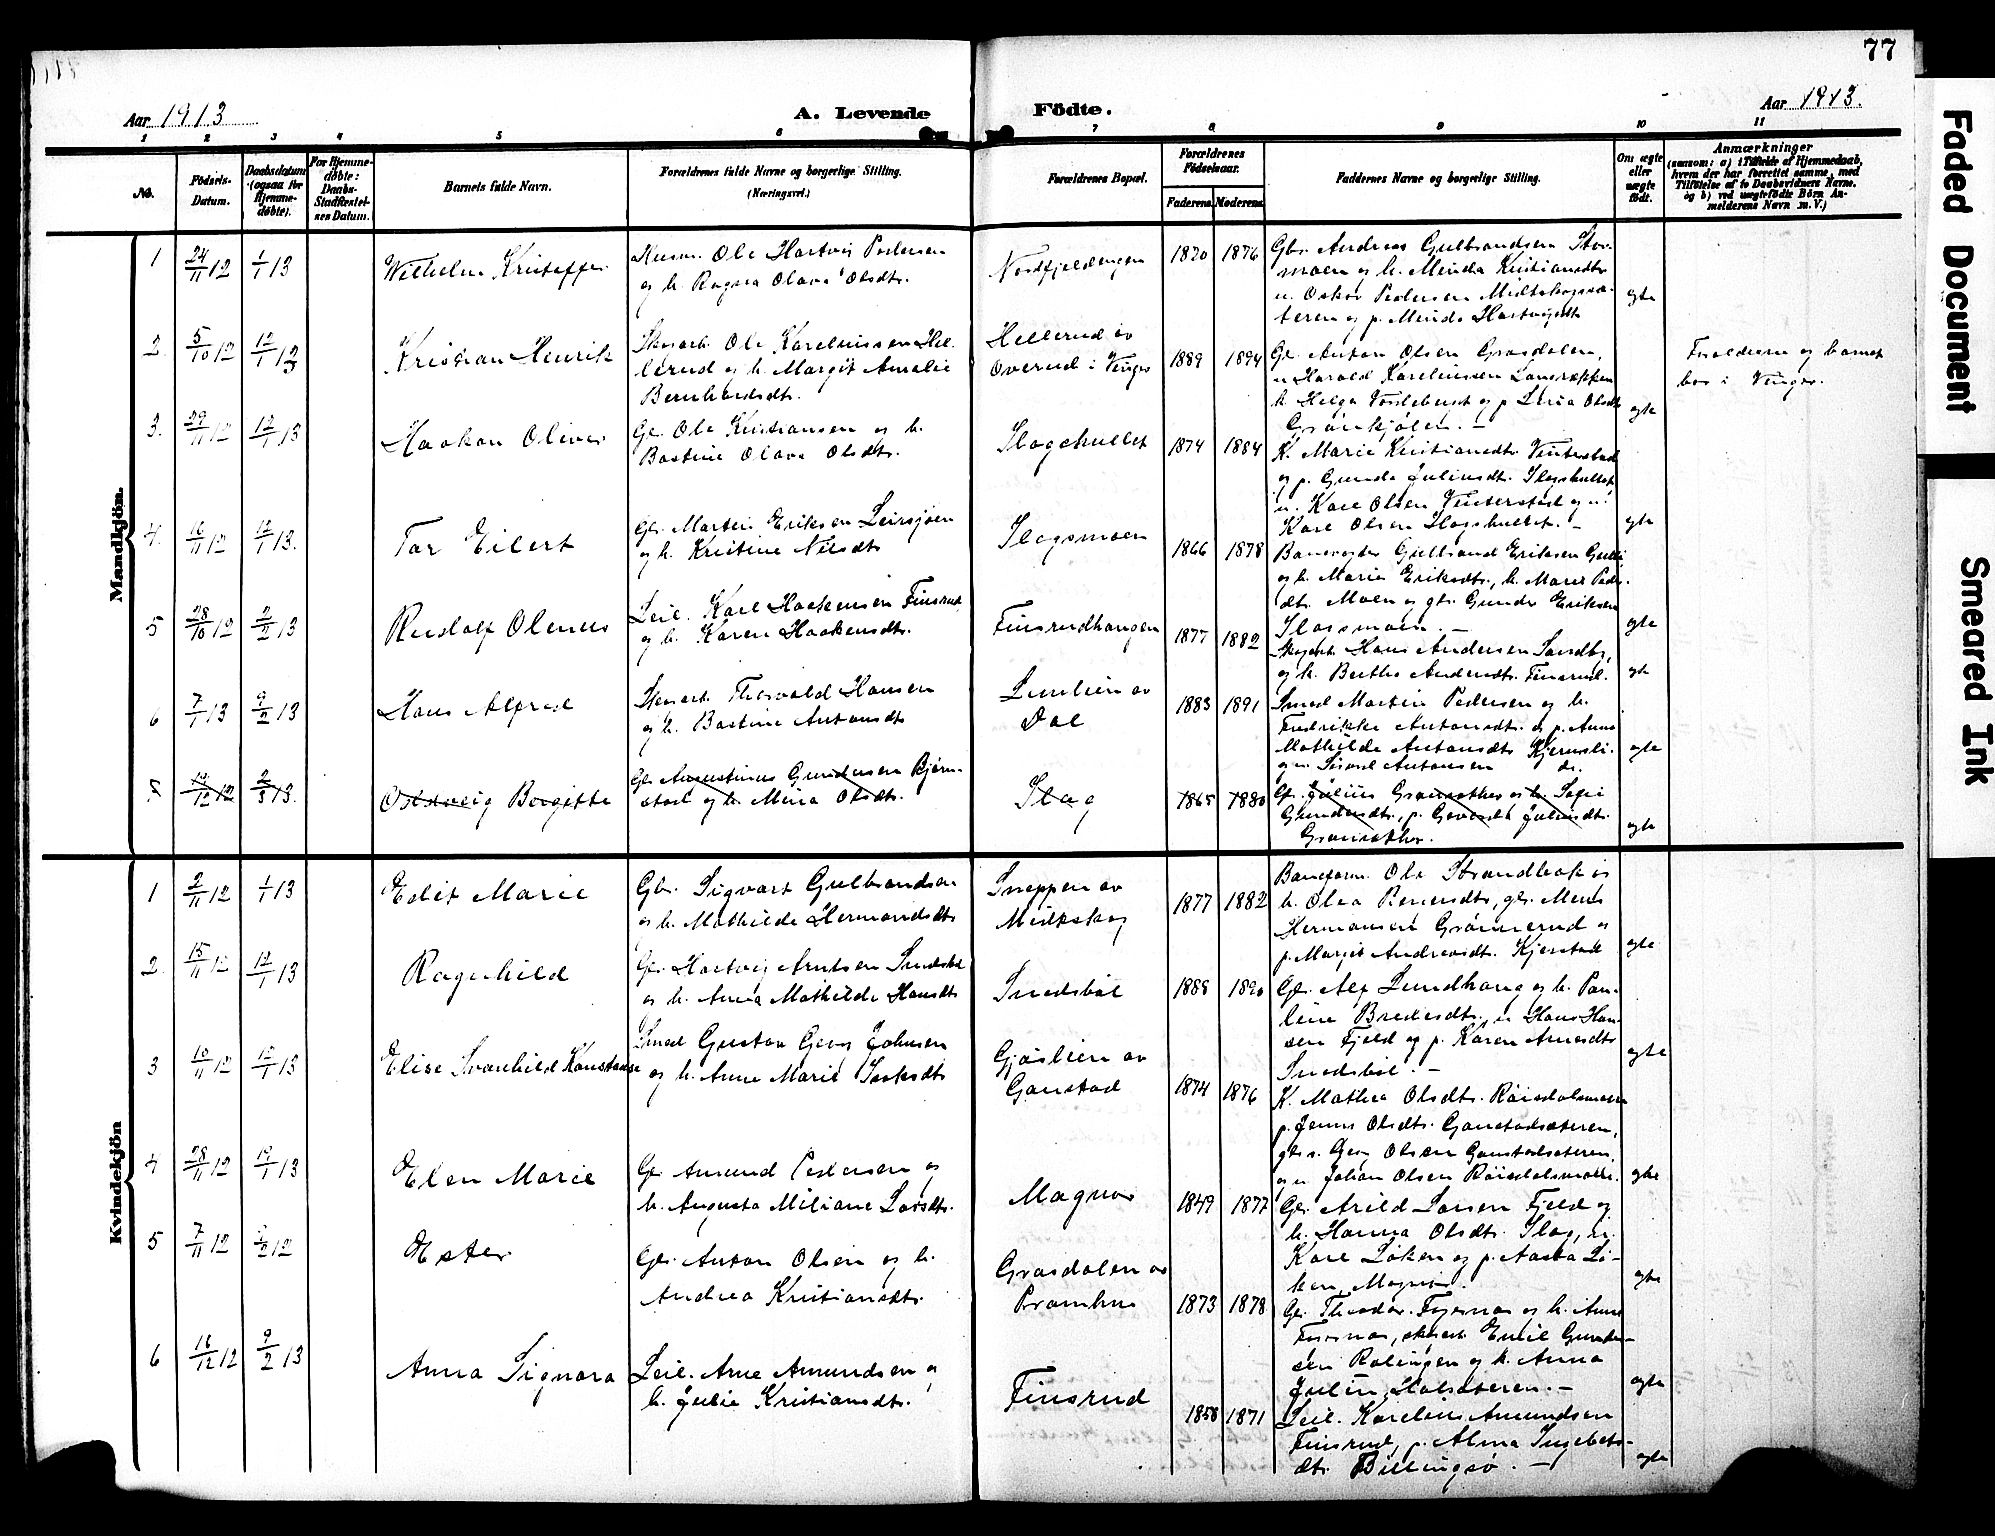 77
Aar 1913
A. Levende
Födte.
Aar 1913.
1 2 3 4 5 6 7 8 9 10 11
No.
Födsels-
Datum.
Daabsdatum
(ogsaa for
Hjemme-
döbte).
For Hjemme-
döbte:
Daabs-
Stadfæstel-
ses Datum.
Barnets fulde Navn.
Forældrenes fulde Navne og borgerlige Stilling.
(Næringsvei.)
Forældrenes Bopæl.
Forældrenes
Födselsaar.
Faderens. Moderens.
Faddernes Navne og borgerlige Stilling.
Om ægte
eller
uægte
födt.
Anmærkninger
(saasom: a) i Tilfælde af Hjemmedaab,
hvem der har forrettet samme, med
Tilföielse af to Daabsvidners Navne,
og b) ved uægtefödte Börn An-
melderens Navn m. V.)
Mandkjön.
1 24/11 12 1/1 13
Wilhelm Kristoffer
Husm. Ole Hartvig Pedersen
og h. Ragna Olava Olsdtr.
Nordfjeldengen
1870 1876
Gbr. Andreas Gulbrandsen Stor-
moen og h. Minda Kristiansdtr.
u. Oskar Pedersen Midtskogsæ-
teren og p. Minda Hartvigsdtr
egte
2. 5/10 12 12/1 13
Kristian Henrik
Skogarb. Ole Kareliussen Hel-
lerud og h. Margit Amalie
Bernhardsdtr.
Hellerud av
Overud i Vinger
1889 1894
Gbr. Anton Olsen Grasdalen,
u. Harald Kareliussen
h. Helga og p. Olsdtr
egte
Forældrene og barnet
bor i Vinger.
3. 29/11 12 12/1 13
Haakon Oliver
Gbr. Ole Kristiansen og h.
Bastine Olava Olsdtr.
1874 1884
K. Marie Kristiansdtr. Vinterstad
og p. Gunda Juliusdtr.
u. Kare Olsen Vinterstad og u.
Kare Olsen
egte
4. 16/11 12 12/1 13.
Tor Eilert
Gbr. Martin Eriksen Leirsjøen
og h. Kristine Nilsdtr
1866 1878
Banevogter Gulbrand Eriksen
og h. Marie Eriksdtr., h. Maren Peders-
dtr. Moen og gbr. Gunder Eriksen
egte
5 28/10 12 2/2 13
Rudolf Olenus
Leil. Karl Haakensen Finsrud
og h. Karen Haakensdtr.
Finsrudhaugen
1877 1882
Skogarb. Hans Andersen Sandbr,
og h. Berthe Andersdtr. Finsrud.
egte
6 7/1 13 9/2 13
Hans Alfred
Skogarb. Thorvald Hansen
og h. Bastine Antonsdtr
Lunlien av
Dal
1883 1891
Smed Martin Pedersen og h.
Fredrikke Antonsdtr. og p. Anna
Mathilde Antonsdtr Kjernsli
og u. Antonsen
egte
12/12 12 2/3 13.
Borgitte
Gbr. Augustinus Gundersen Bjørn-
stad og h. Mina Olsdtr.
1865 1880
Gbr. Julius og h. Sofie
Gundersdtr., p. Juliusdtr.
egte
Kvindekjön
1 2/11 12 1/1 13
Edit Marie
Gbr. Sigvart Gulbrandsen
og h. Mathilde Hermansdtr
Sneppen av
Midtskog
1877 1882
Baneform. Ole Strandbak og
h. Olea Berntsdtr., gbr.
Hermansen Grønnerud og
p. Margit Andreasdtr. Kjerstad
egte
2. 15/11 12 12/1 13
Ragnhild
Gbr. Hartvig Arntsen Sundsbøl
og h. Anna Mathilde Hansdtr
1888 1890
Gbr. Alf Lundhaug og h. Pau-
line Bredesdtr., u. Hans Han-
sen Fjeld og p. Karen Arnesdtr
egte
3 10/11 12 12/1 13
Elise Svanhild Konstanse
Smed Gustav Georg Johnsen
og h. Anne Marie Isaksdtr
Gjøslien av
Gaustad
1874 1876
K. Mathea Olsdtr. Røisdalsmoen
p. Jenny Olsdtr. Gaustadsæteren,
gbrs. Georg Olsen Gaustadsæteren,
og u. Johan Olsen Røisdalsmoen.
egte
4 28/11 12 12/1 13
Elen Marie
Gbr. Amund Pedersen og
h. Augusta Miliane Larsdtr.
Magnor
1849 1877
Gbr. Arild Larsen Fjeld og
h. Hanna Olsdtr. u.
Karl Løken og p. Aasta Lø-
ken, Magnor.
egte
5 7/11 12 2/2 12
Ester
Gbr. Anton Olsen og h.
Andrea Kristiansdtr.
Grasdalen av
Pramhus
1873 1878
Gbr. Theodor og h. Anne
skogarb. Emil Gunder-
sen Rolingen og h. Anna
Julin
egte
6 16/12 12 9/2 13
Anna Signora
Leil. Arne Amundsen og
h. Julie Kristiansdtr.
Finsrud
1858 1871
Leil. Karelius Amundsen
Finsrud, p. Alma Ingebrets-
dtr. Billingsø.
egte
Faded Document
Smeared Ink